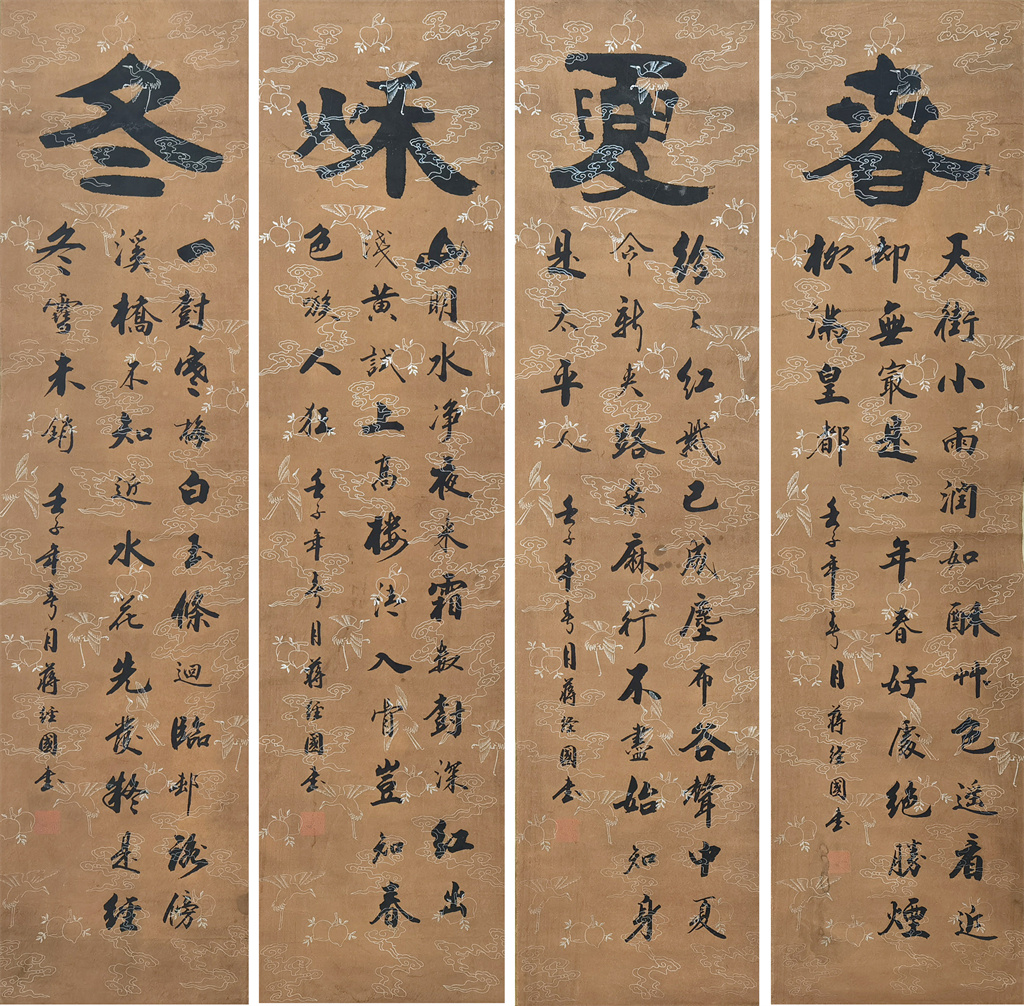 春
天街小雨潤如酥艸色遥看近
却無㝡是一年春好處絕勝煙
柳滿皇都 壬子年春月蔣經國書
夏
紛〻紅紫已成塵布谷聲中夏
令新夾路桑麻行不盡始知身
是太平人 壬子年春月蔣經國書
秋
山明水净夜来霜數對深紅出
淺黃試上高樓清入骨豈知春
色嗾人狂 壬子年春月蔣經國書
冬
一對寒梅白玉條迴臨邨路傍
溪橋不知近水花先發疑是經
冬雪未銷 壬子年春月蔣經國書